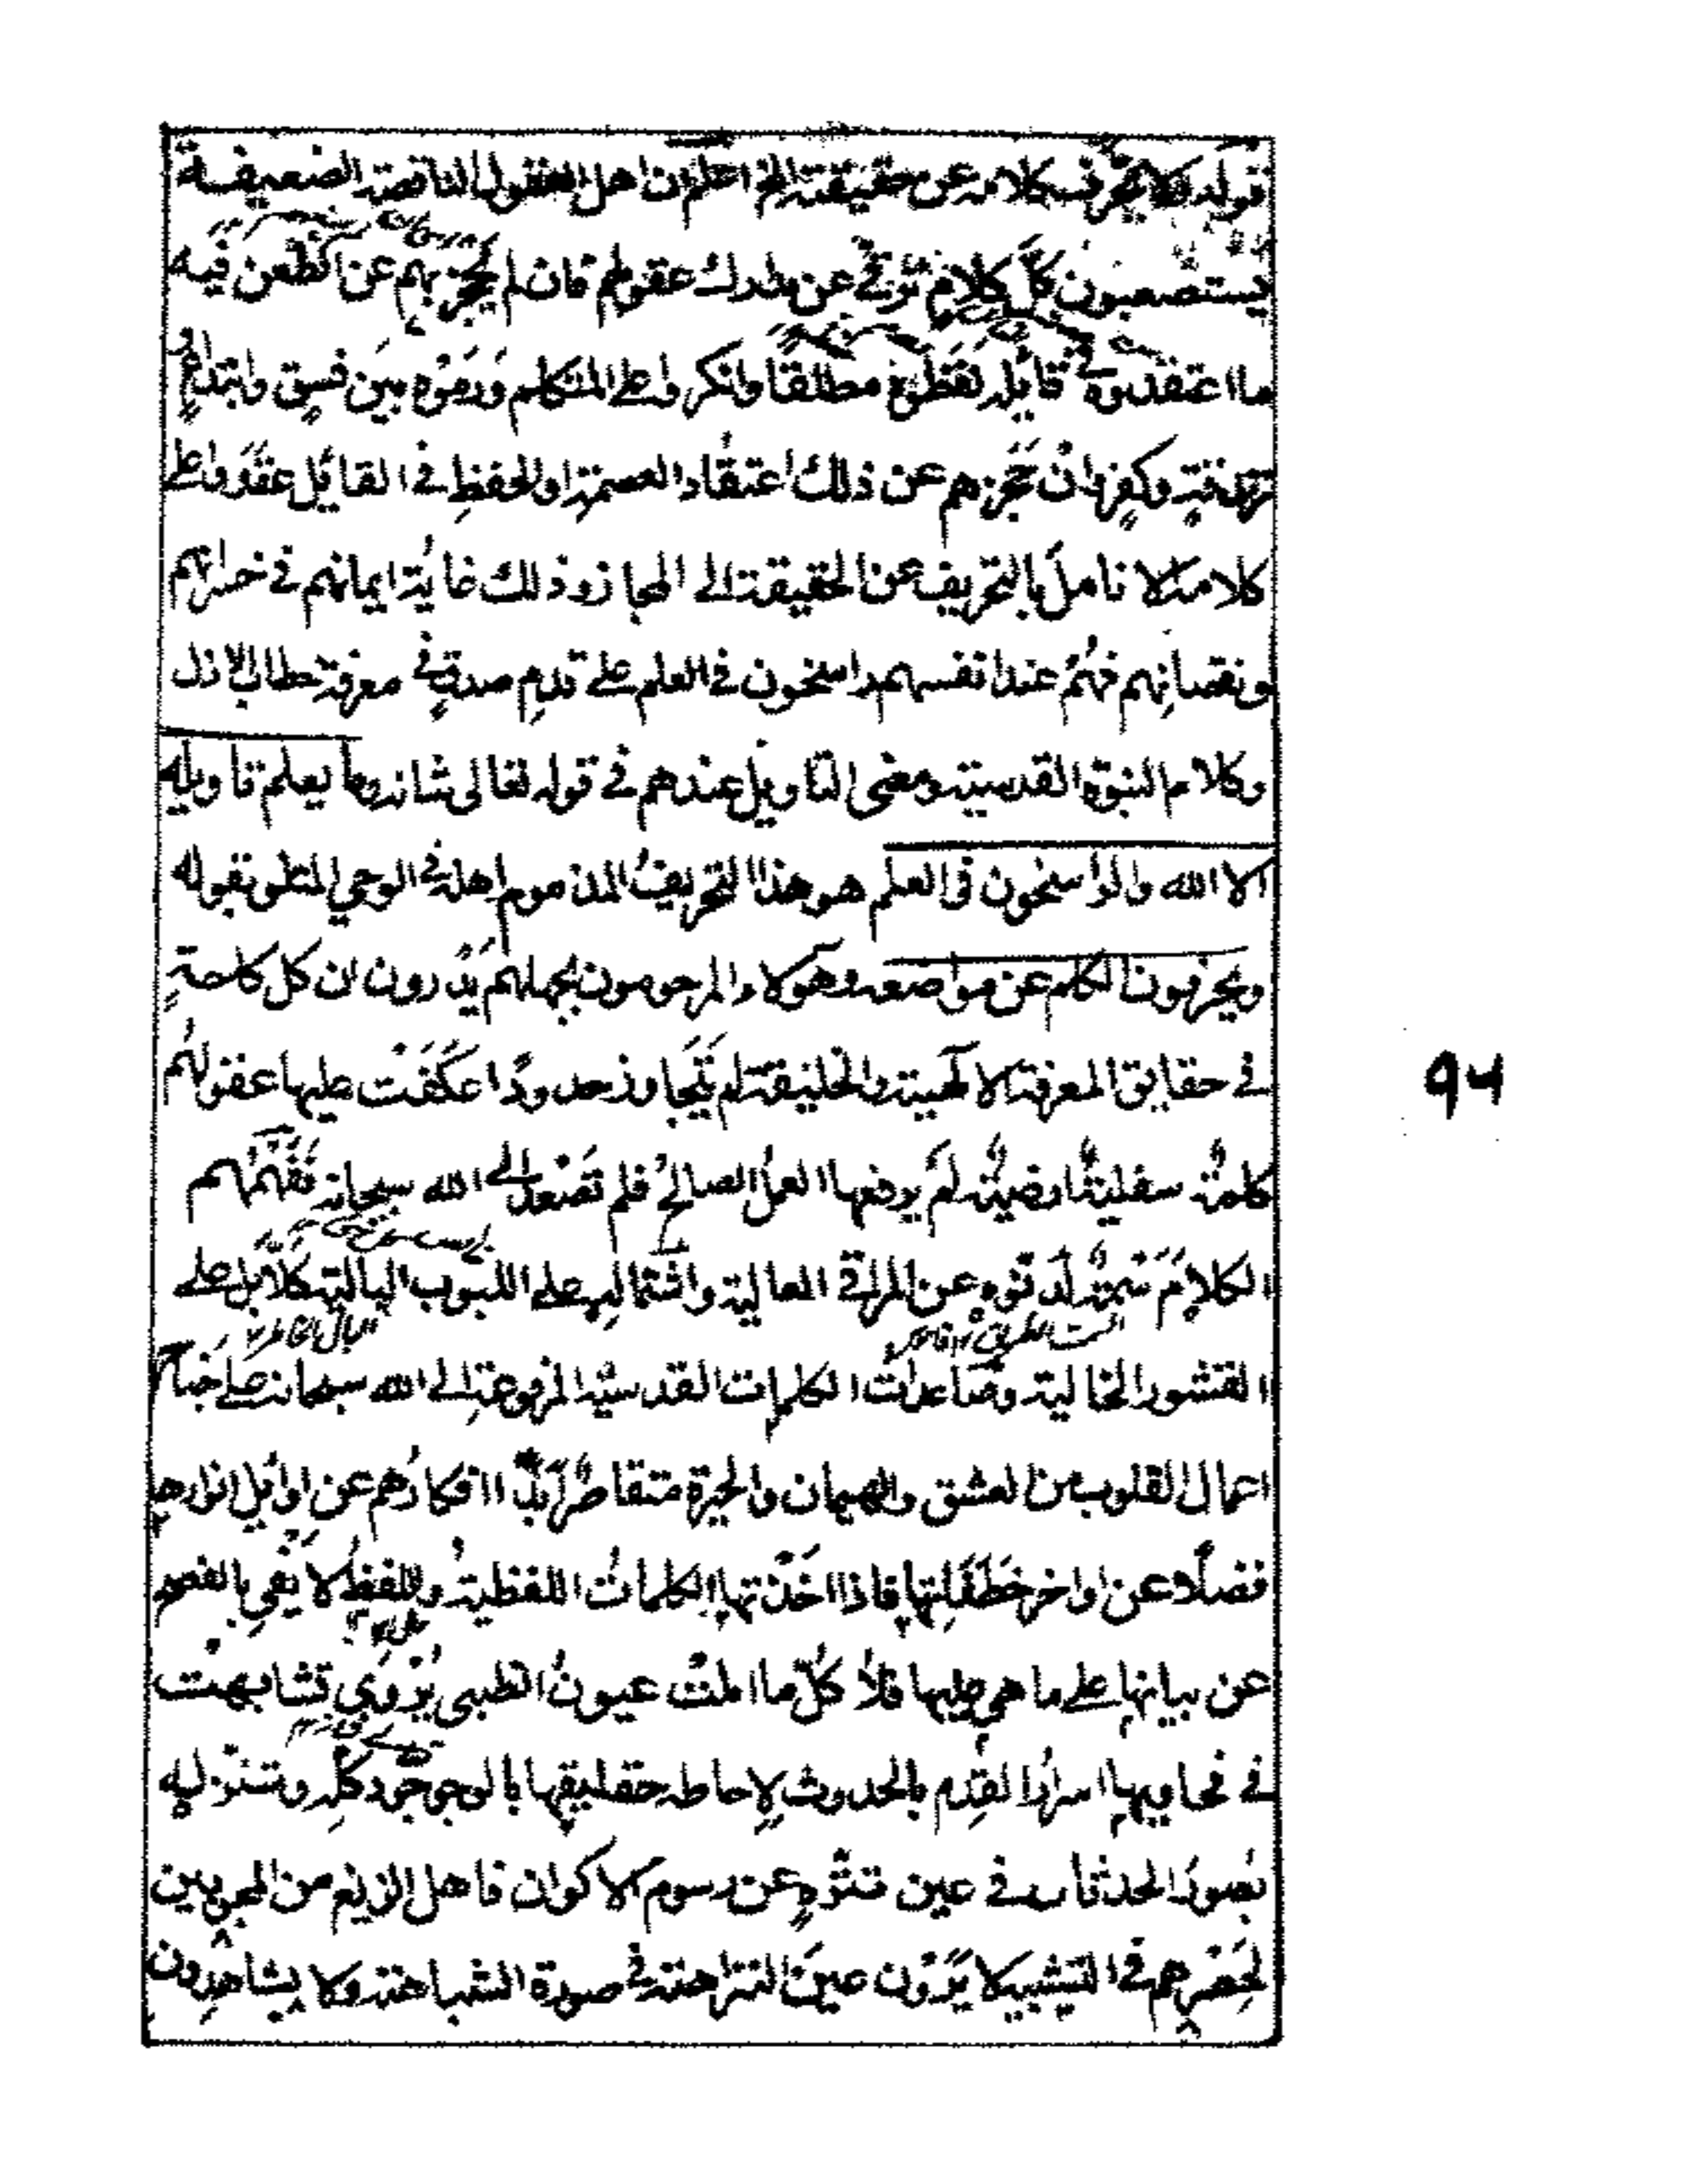 قوله فلا يحرف كلامه عن حقيقته الخ اعلم ان اهل العقول الناقصة الضعيفة
يستصعبون كل كلام ترقى عن مدرك عقولهم فان لم يحجزهم عن الطعن فيه
ما اعتقدوه في قايله نقطوع مطلقا وانكروا على المتكلم ورموه بين فسق وابتداع
تزندقة وكفر وان حجزهم عن ذلك اعتقاد العصمة او الحفظ في القائل عقدوا على
كلامه لا نامل بالتحريف عن الحقيقة الى المجاز وذلك غاية ايمانهم في خسرانهم
ونقصانهم فهم عند انفسهم راسخون في العلم على قدم صدق في معرفة خطاب الازل
وكلام النبوة القدسية ومعنى التاويل عندهم في قوله تعالى شانه وما يعلم تاويله
الا الله والراسخون في العلم هو هذا التحريف المذموم اهله في الوحي المتلو بقوله
ويحرفون الكلم عن مواضعه وهؤلاء المرحومون بجهلهم يدرون ان كل كلمة
في حقايق المعرفة الالهية والخليقة لم تتجاوز حدودا عكفت عليها عقولهم
كلمة سفلية ارضية لم يرفعها العمل الصالح فلم تصعد الى الله سبحانه تفهمهم
الكلام شمة له تنوه عن المراقي العالية واشتماله على اللبوب البالية كلا بل على
القشور الخالية وصاعدات الكلمات القدسية المرفوعة الى الله سبحانه على جناح
اعمال القلوب من العشق والهيمان والحيرة متقاصر ابدا افكارهم عن اوايل انوارها
فضلا عن اواخر خطفاتها فاذا اخذتها الكلمات اللفظية واللفظ لا يفي بالفصح
عن بيانها على ما هي عليها فلا كل ما المت عيون الظبي يروي تشابهت
في فحاويها اسرار القدم بالحدوث لاحاطة حقايقها بالوجود كله وتنزله
بصور الحدثان في عين تنزه عن رسوم الاكوان فاهل الزيغ من المحجوبين
لحصرهم في التشبيه لا يرون عين النزاهة في صورة الشباهة ولا يشاهدون
٩٤